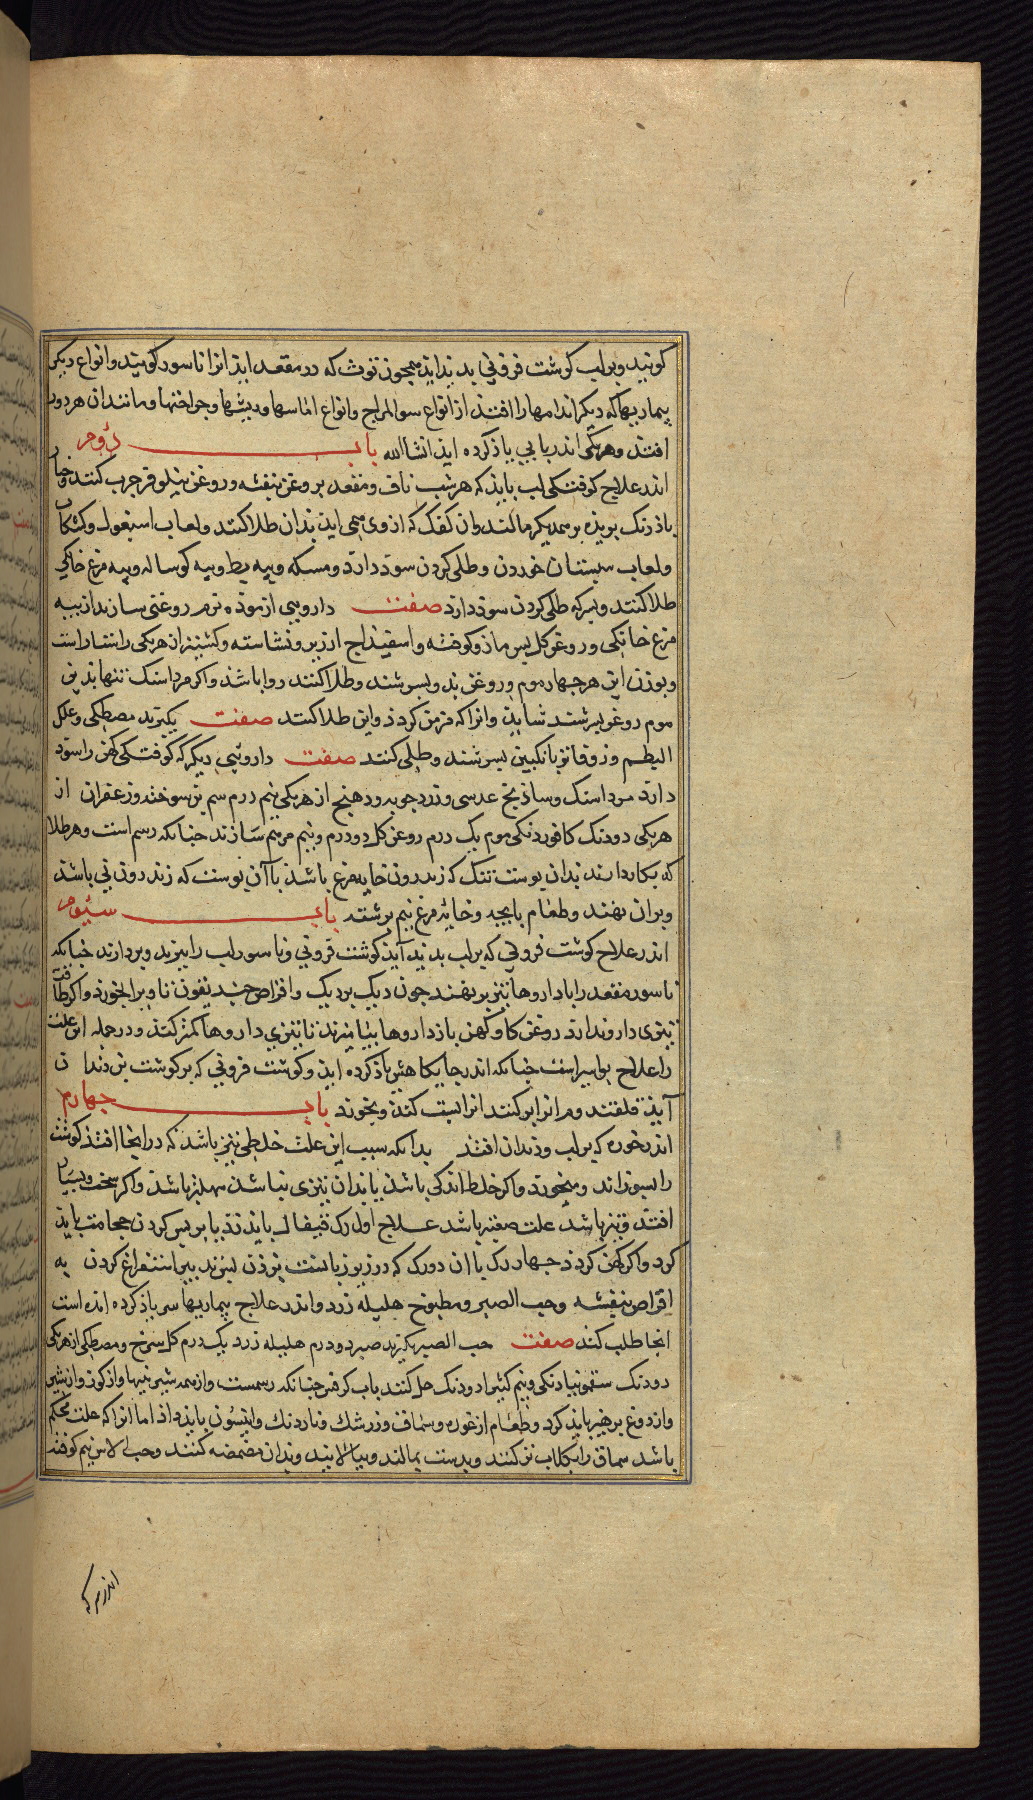 گویند و بر لب گوشت فزونی بدید اید همچون توث که در مقعد اید انرا ناسور گویند و انواع دیگر
بیماریها که دیگر اندامها را افتد از انواع سوالمزاج و انواع اماسها و ریشها و جراحتها و مانند ان هر دو
افتد و هریکی اندر بابی یاذ کرده اید انشاالله باب دؤم
اندر علاج کوفتکی لب بایذ که هر شب ناف و مقعد بروغن بنفشه و روغن نیلوفر چرب کنند و خیار
باذرنک بریذه بر همدیگر مالند وان کفک که از وی همی اید بدان طلا کنند و لعاب اسبغول و کشکاب
و لعاب سبستان خوردن و طلی کردن سوذ دارد و مسکه و پیه بط و پیه کوساله و پیه مرغ خانکی
طلا کنند و بسرکه طلی کردن سوذ دارد صفت دارویی ازموده نرم روغنی سازند از پیه
مرغ خانکی و روغن کل بس مازو کوفته و اسفیذاج ارزیر و نشاسته و کثیرا از هریکی راستاراست
و بوزن این هر چهار موم و روغن بد و بسرشند و طلا کنند روا باشد و اکر مرداسنک تنها بدین
موم روغن بسرشند شاید و انرا که مزمن کردذ و این طلا کنند صفت بکیرند مصطکی و علک
البطم و زوفا تر بانکبین بسرشند و طلی کنند صفت دارویی دیگر که کوفتکی کهن را سوذ
دارد مرداسنک و ساذنج عدسی و زردچوبه و دهنج از هریکی نیم درم سم بز سوخته و زعفران از
هریکی دو دنک کافور دنکی موم یک درم روغن کل دو درم و نیم مرهم سازند چنانکه رسم است و هر طلا
که بکار دارند بذان پوست تنک که زیر درون خایه مرغ باشد یا آن پوست که زیر درون نی باشد
بران نهند و طعام پایچه و خایه مرغ نیم برشت باب سیؤم
اندر علاج گوشت فزونی که بر لب بدید آید گوشت فزونی و ناسور لب را ببرند و بردارند چنانکه
ناسور مقعد را یا داروها تیز بر نهند چون دیک بر دیک و اقراص ... تا ویرا بخورد و اکر طاقت
تیزی دارو ندارد روغن کاو کهن با داروها بیامیزند تا تیزی داروها کمتر کند و در جمله این علت
را علاج بواسیر است چنانکه اندر جایکاهش یاذ کرده اید و گوشت فزونی که بر گوشت بن دندان
آید قلقند و مر انرا بر کنند انرا بست کند و بخورد باب جهارم
اندر خوره که بر لب و دندان افتد بدانکه سبب این علت خلطی تیز باشد که در انجا افتد گوشت
را بسوزاند و بخورد و اکر خلط اندکی باشد یا بدان تیزی نباشد سهلتر باشد و اکر سخت و بسیار
افتد و تیز باشد علت صعبتر باشد علاج اول رک قیفال بایذ زد یا بر پس کردن حجامت باید
کرد و اکر کهن کردذ چهار رک یا ان دو رک که در زیر زبانست بزذن پس ازین استفراغ کردن به
اقراص بنفشه و حب الصبر و مطبوخ هلیله زرد و اندر علاج بیماریها سر یاذ کرده امده است
انجا طلب کنند صفت حب الصبر بکیرند صبر دو درم هلیله زرد یک درم کل سرخ و مصطکی از هریکی
دو دنک سقمونیا دنکی و نیم کثیرا دو دنک حل کنند باب کرفس چنانکه رسمست و از همه شیرینیها و از کوشت و از شیر
و از دوغ پرهیز باید کرد و طعام از غوره و سماق و زرشک و ناردنک و لیسون باید داذ اما انرا که علت محکم
باشد سماق را بکلاب تر کنند و بدست بمالند و بپالایند و بدان مضمضه کنند و حب الاس نیم کوفته
اندر سرکه